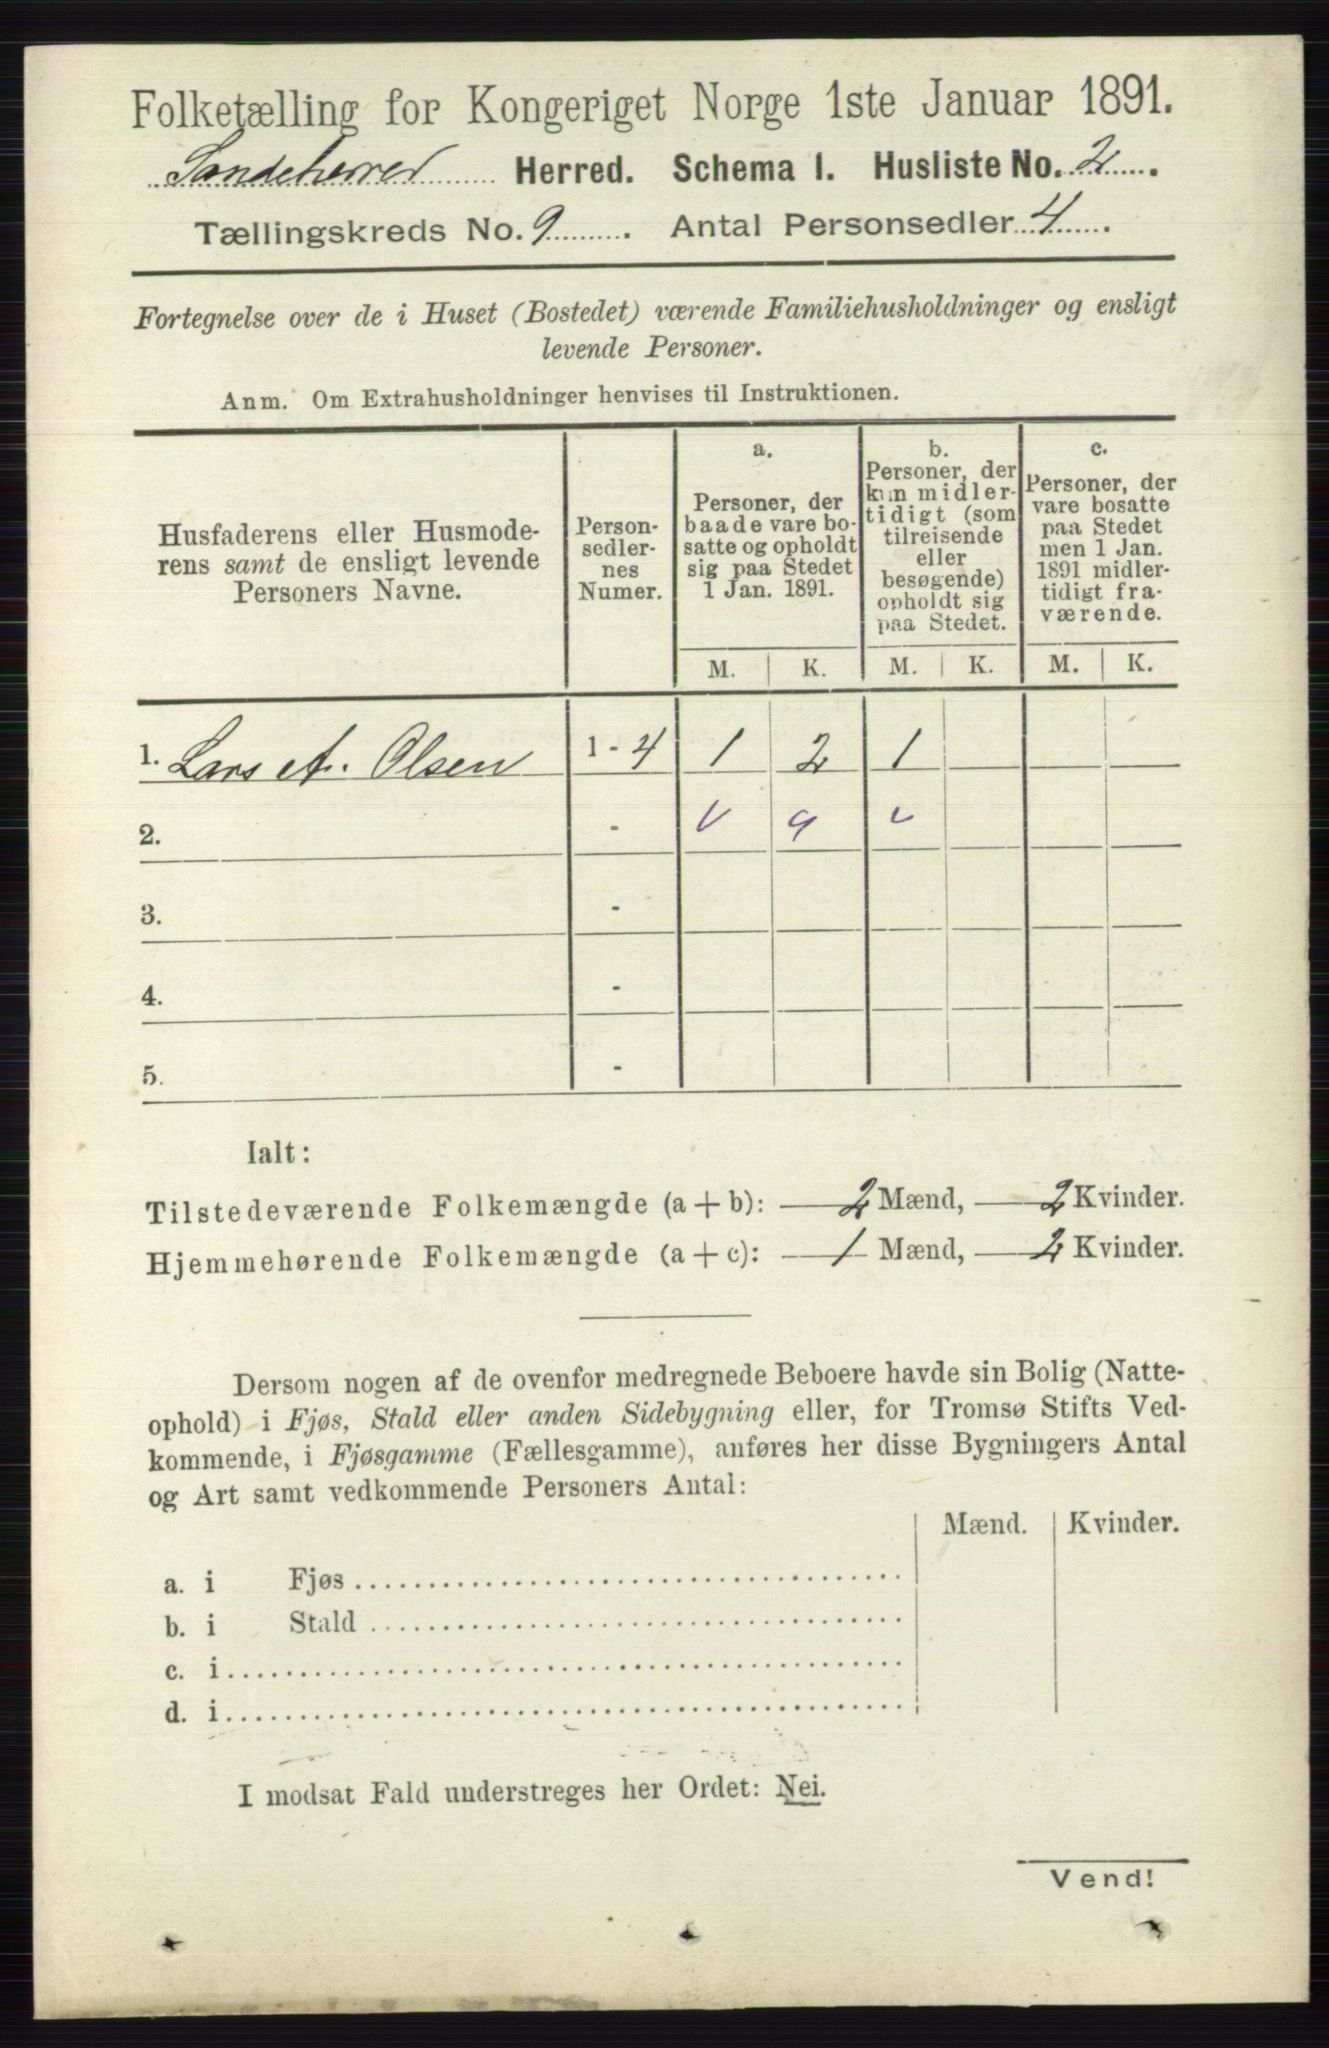 Folketælling for Kongeriget Norge 1ste Januar 1891.
Sandeherred Herred. Schema I. Husliste No. 2.
Tællingskreds No. 9. Antal Personsedler 4.
Fortegnelse over de i Huset (Bostedet) værende Familiehusholdninger og ensligt
levende Personer.
Anm. Om Extrahusholdninger henvises til Instruktionen.
Husfaderens eller Husmode-
rens samt de ensligt levende
Personers Navne.
Person-
sedler-
nes
Numer.
a.
Personer, der
baade vare bo-
satte og opholdt
sig paa Stedet
1 Jan. 1891.
b.
Personer, der
kun midler-
tidigt (som
tilreisende
eller
besøgende)
opholdt sig
paa Stedet.
c.
Personer, der
vare bosatte
paa Stedet
men 1 Jan.
1891 midler-
tidigt fra-
værende.
M. K. M. K. M. K.
1. Lars A. Olsen 1 - 4 1 2 1
2. -
3. -
4. -
5. -
Ialt:
Tilstedeværende Folkemængde (a + b): 2 Mænd, 2 Kvinder.
Hjemmehørende Folkemængde (a + c): 1 Mænd, 2 Kvinder.
Dersom nogen af de ovenfor medregnede Beboere havde sin Bolig (Natte-
ophold) i Fjøs, Stald eller anden Sidebygning eller, for Tromsø Stifts Ved-
kommende, i Fjøsgamme (Fællesgamme), anføres her disse Bygningers Antal
og Art samt vedkommende Personers Antal:
Mænd. Kvinder.
a. i Fjøs
b. i Stald
c. i
d. i
I modsat Fald understreges her Ordet: Nei.
Vend!